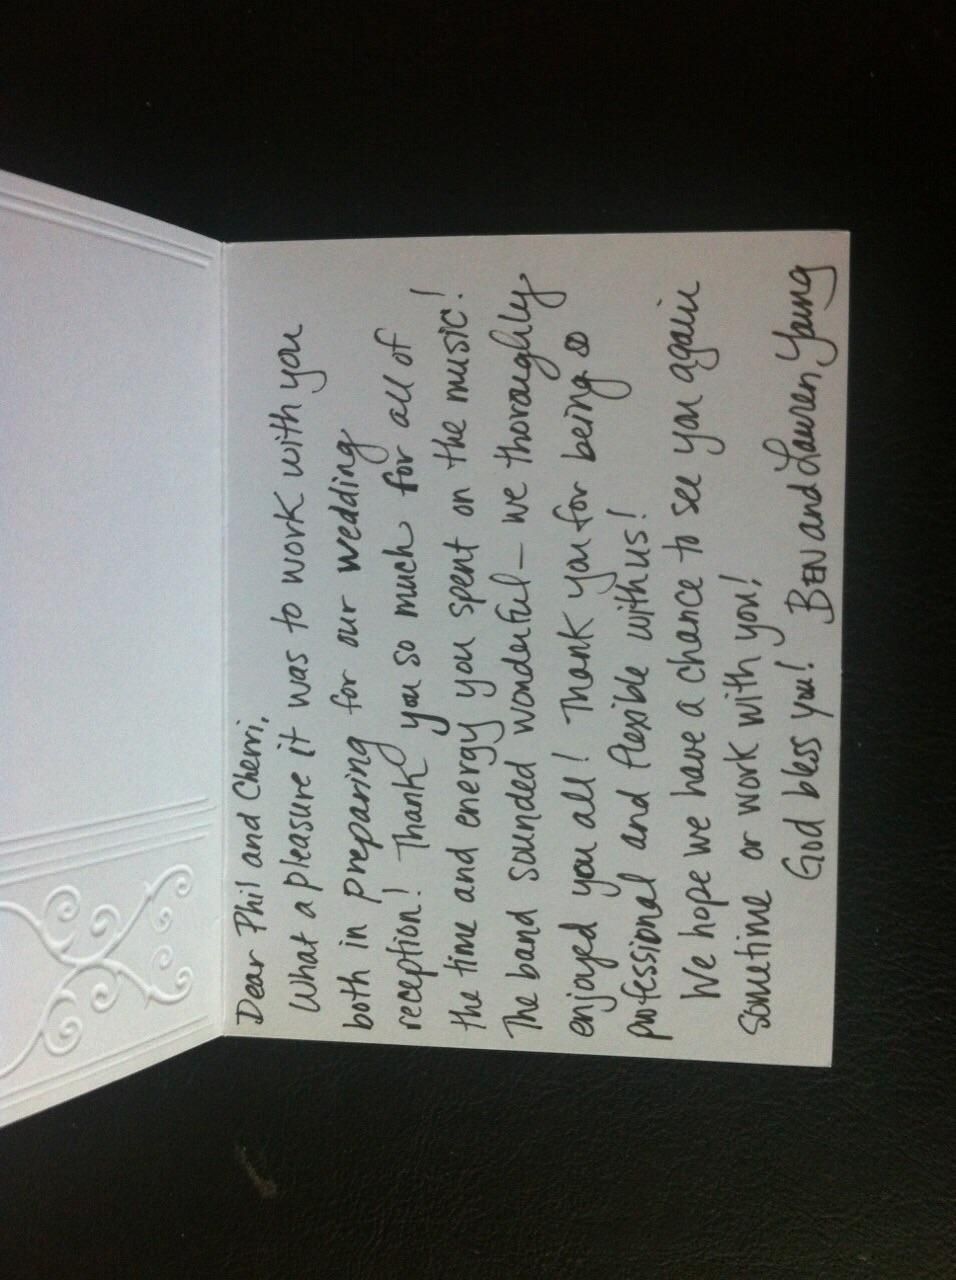 Dear Phil and Cherri,
What a pleasure it was to work with you
both in preparing for our wedding
reception! Thank you so much for all of
the time and energy you spent on the music!
The band sounded wonderful — we thoroughly
enjoyed you all! Thank you for being so
professional and flexible with us!
We hope we have a chance to see you again
sometime or work with you!
God bless you! BEN and Lauren Young